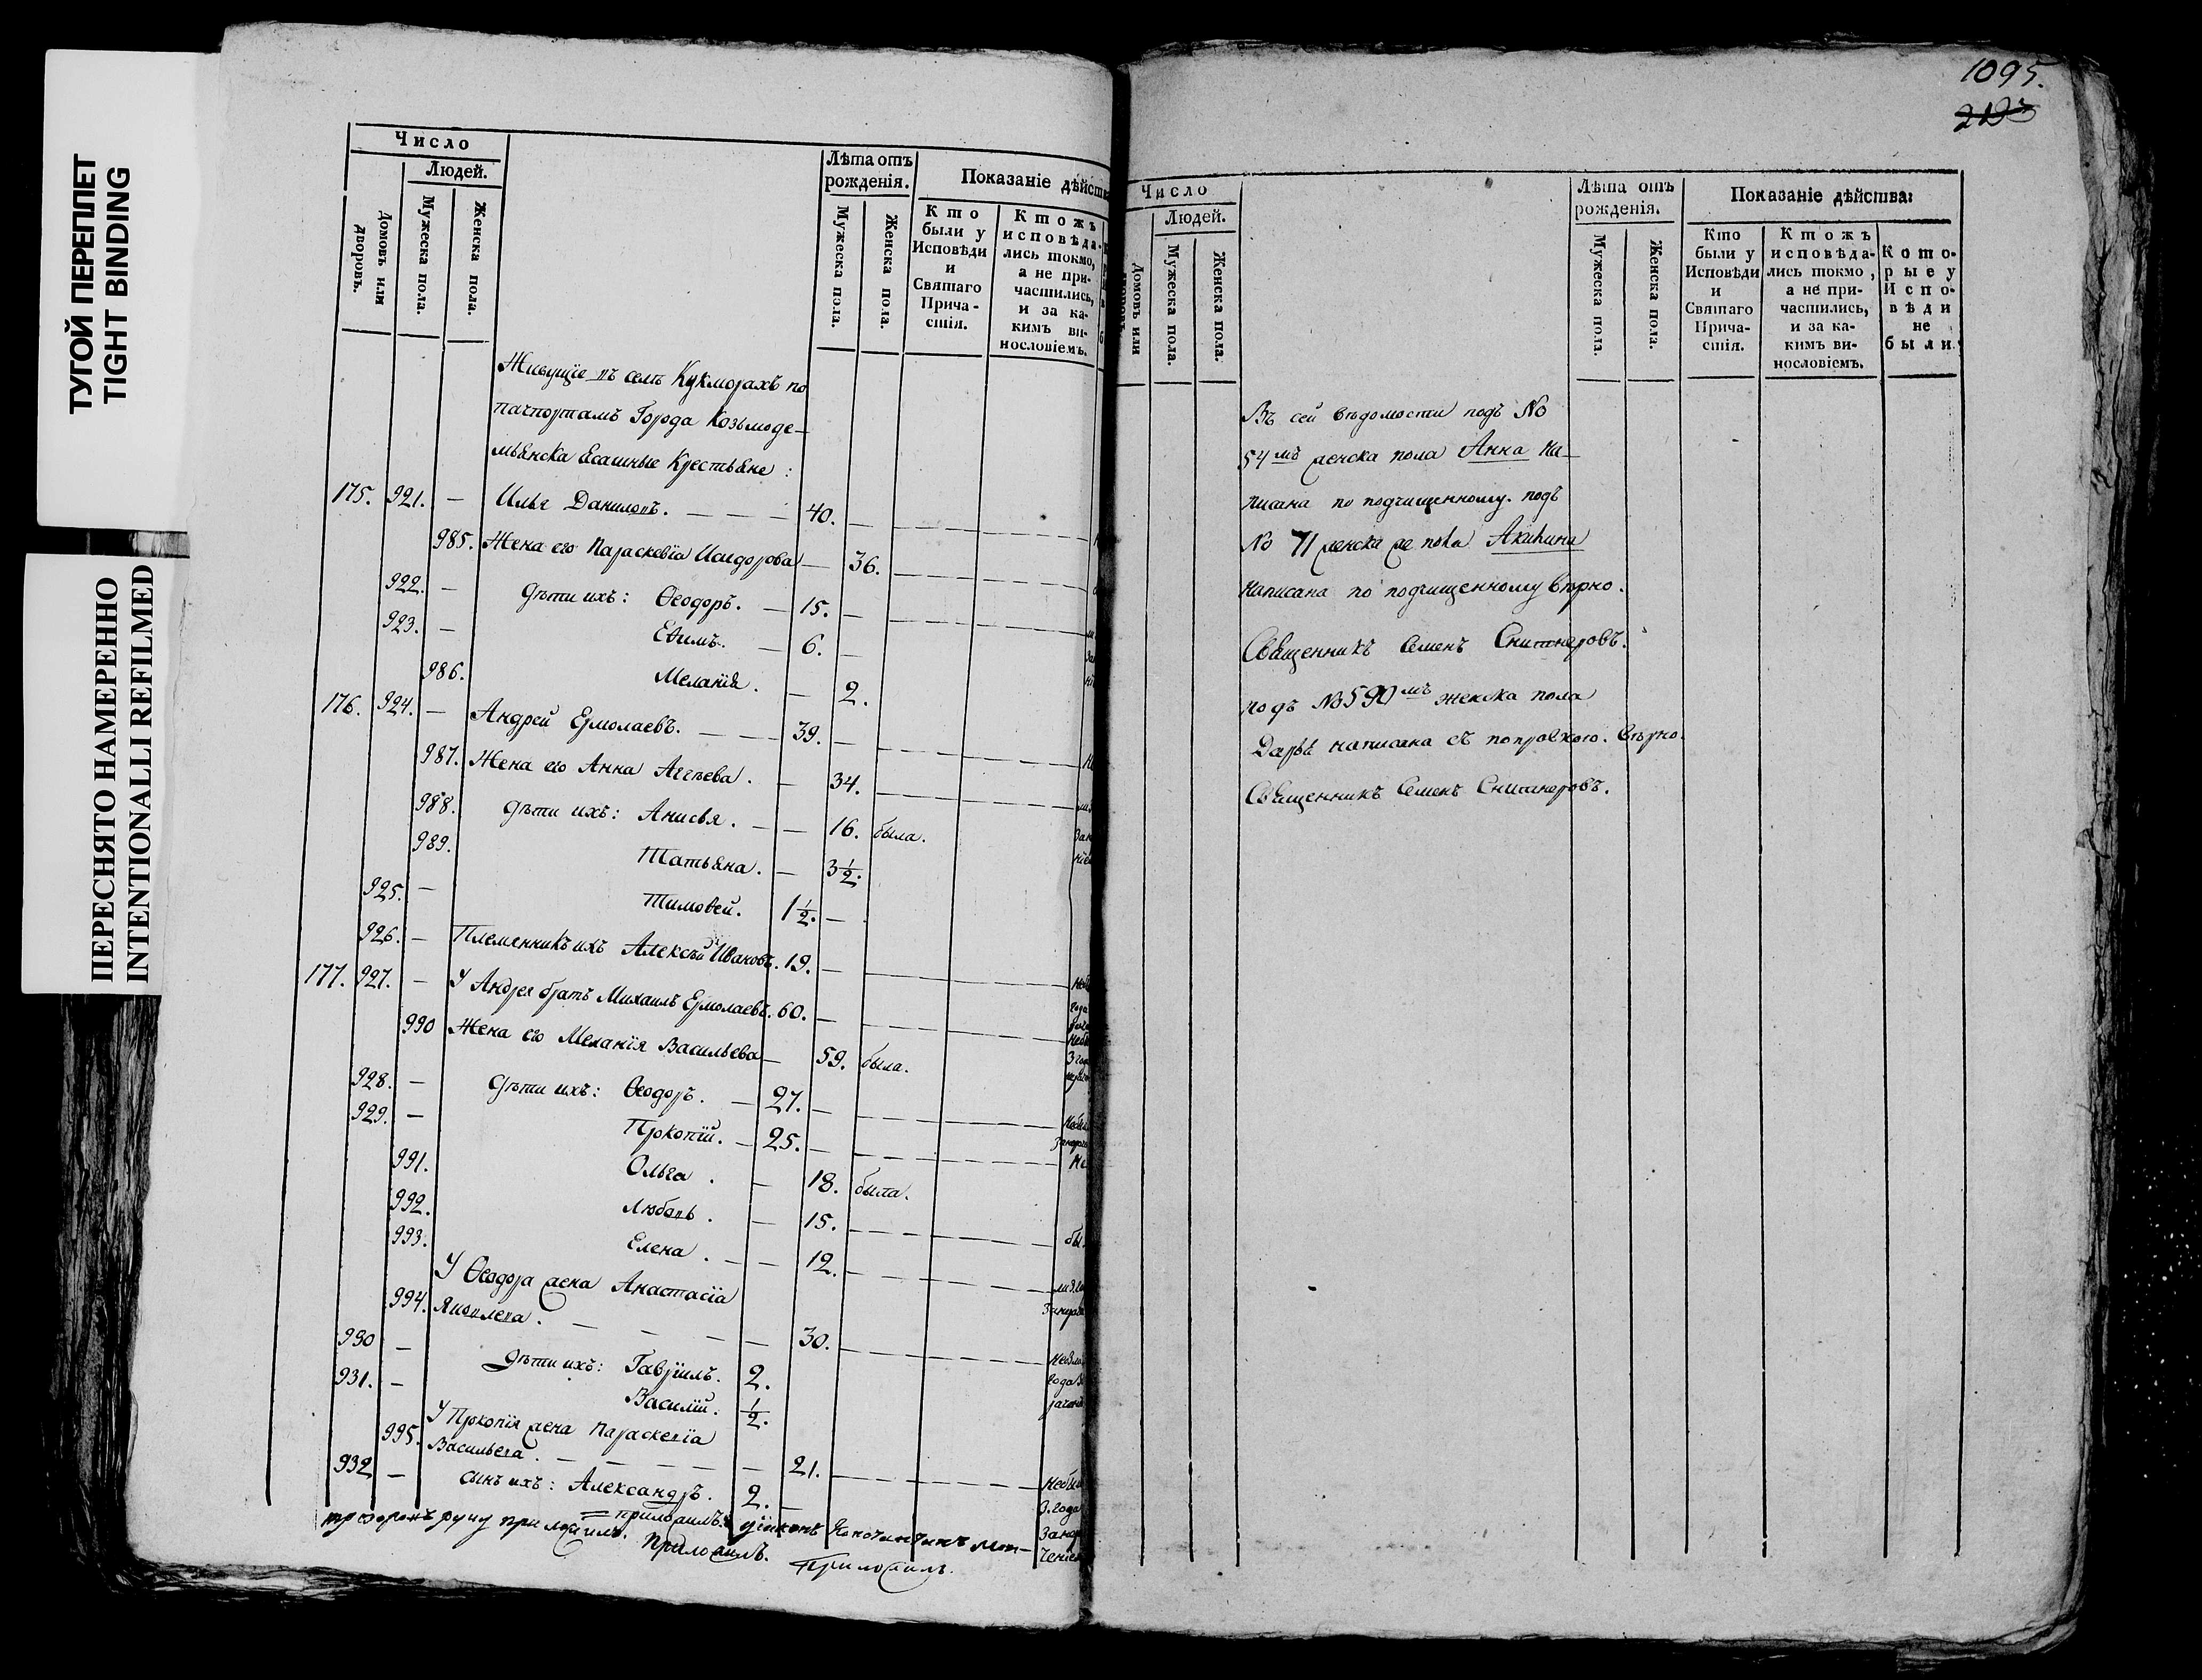 ТУГОЙ ПЕРЕПЛЕТ
TIGHT BINDING
ПЕРЕСНЯТО НАМЕРЕННО
INTENTIONALLI REFILMED
Число
Людей.
Домовъ или дворовъ.
Мужеска пола.
Женска пола.
Лѣта отъ рожденія.
Мужеска пола.
Женска пола.
Показаніе дѣйства
Кто были у Исповѣди и Святаго Прича-стія.
Ктожъ исповѣда-лись токмо, а не при-частились, и за ка-кимъ ви-нословіемъ.
Живущіе въ селѣ Кукморахъ по
пачпортамъ Города Козьмоде-
мьянска Ясашные Крестьяне :
175. 921. — Илья Даниловъ. — 40. —
985. Жена его Параскевіа Исидорова — 36.
922. — Дѣти ихъ: Ѳеодоръ. — 15. —
923. — Еѳимъ. — 6. —
986. Меланія. — 2.
176. 924. — Андрей Ермолаевъ. — 39. —
987. Жена его Анна Аггѣева. — 34.
988. Дѣти ихъ: Анисья. — 16. была.
989. Татьяна. — 3 1/2.
925. — Тимоѳей. 1 1/2. —
926. — Племянникъ ихъ Алексѣй Ивановъ. 19. —
177. 927. — У Андрея братъ Михаилъ Ермолаевъ. 60. —
990 Жена его Меланія Васильева — 59. была.
928. — Дѣти ихъ: Ѳеодоръ. — 27. —
929. — Прокопій. — 25. —
991. Ольга. — 18. была.
992. Любовь. — 15.
993. Елена. — 12.
У Ѳеодора жена Анастасіа
994. Яковлева. — 30.
930 — Дѣти ихъ: Гавріилъ. 2.
931. — Василій. 1/2.
У Прокопія жена Параскевіа
995. Васильева. — 21.
932 — Сынъ ихъ: Александръ. 2. —
руку приложилъ.
приложилъ.
Приложилъ.
1095.
Число
Людей.
Домовъ или дворовъ.
Мужеска пола.
Женска пола.
Лѣта отъ рожденія.
Мужеска пола.
Женска пола.
Показаніе дѣйства:
Кто были у Исповѣди и Святаго Прича-стія.
Ктожъ исповѣда-лись токмо, а не при-частились, и за ка-кимъ ви-нословіемъ.
Кото-рые у Испо-вѣди не были.
Въ сей вѣдомости подъ No
54 мъ женска пола Анна на-
писана по подчищенному. подъ
No 71 женска же пола Акилина
написана по подчищенному вѣрно.
Священникъ Семенъ Снитнеровъ.
подъ No 590 мъ женска пола
Дарья написана съ поправкою. вѣрно.
Священникъ Семенъ Снитнеровъ.